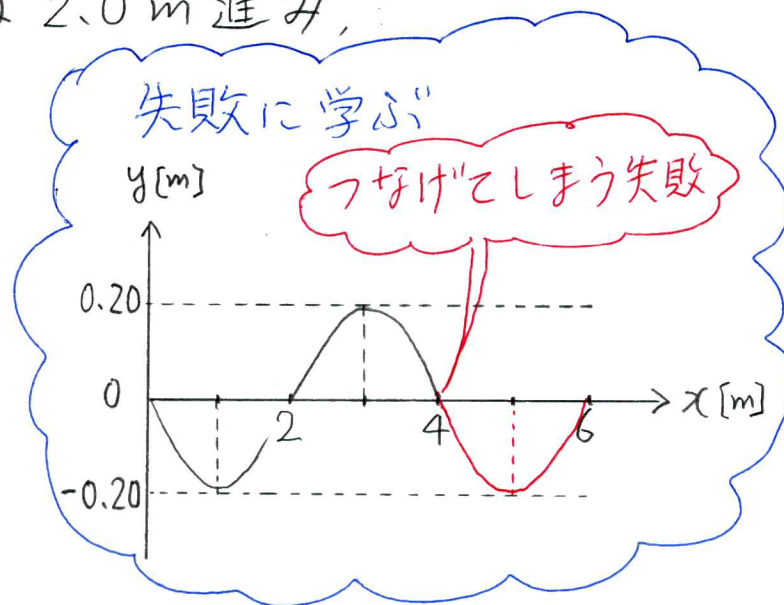 2.0m進み,
失敗に学ぶ
つなげてしまう失敗
y[m]
0.20
0
2
4
6
x[m]
-0.20